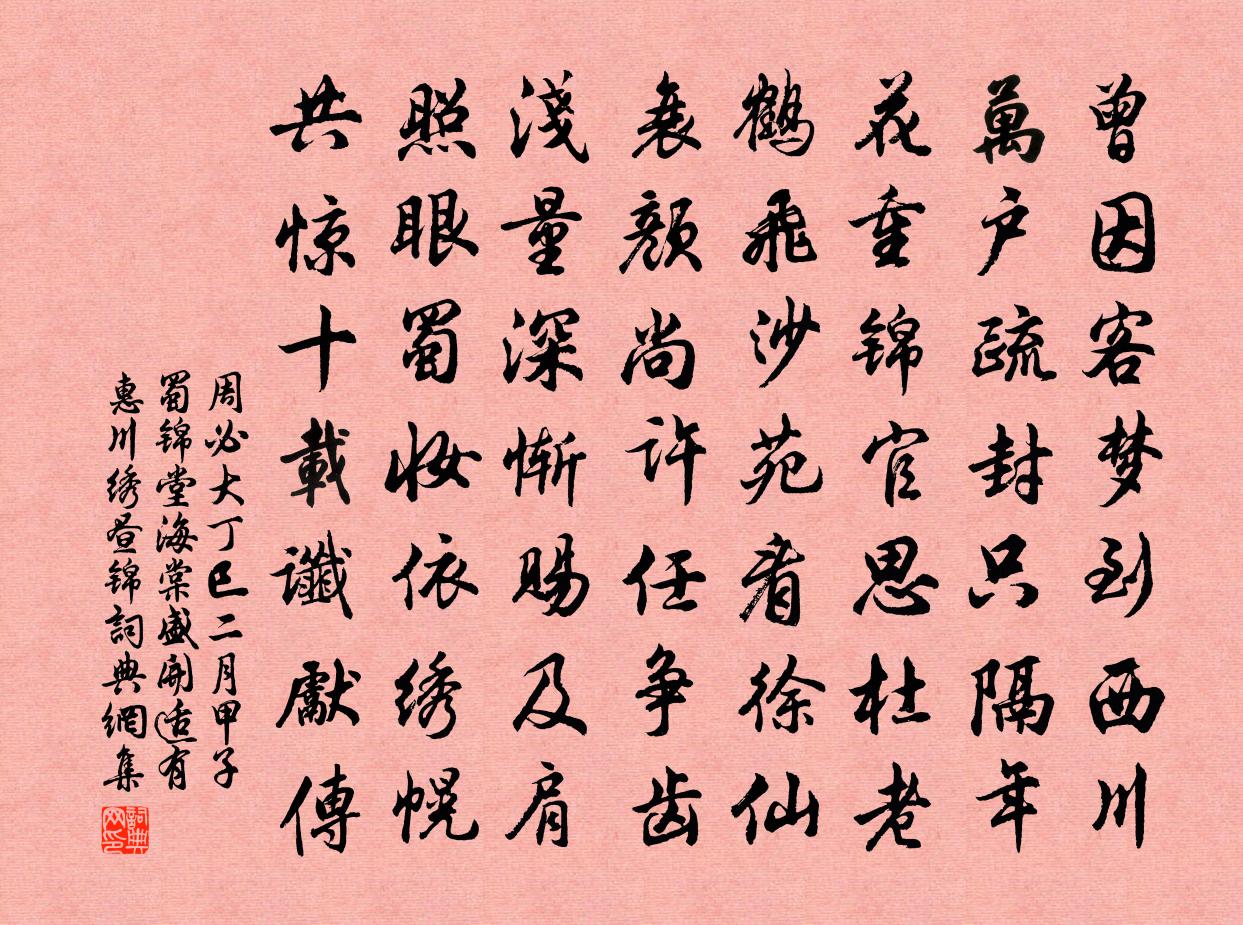 曾因客梦到西川
萬户疏封只隔年
花重锦官思杜老
鹤飛沙苑看徐仙
衰颜尚许任争齿
淺量深惭赐及肩
照眼蜀妆依绣幌
共惊十載谶獻傳
周必大丁巳二月甲子
蜀锦堂海棠盛開适有
惠川绣昼锦詞典網集
詞典网印